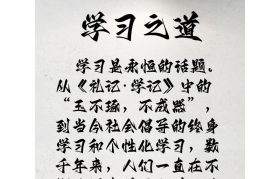 学习之道
学习是永恒的话题。
从《礼记·学记》中的
“玉不琢，不成器”，
到当今社会倡导的终身
学习和个性化学习，数
千年来，人们一直在不